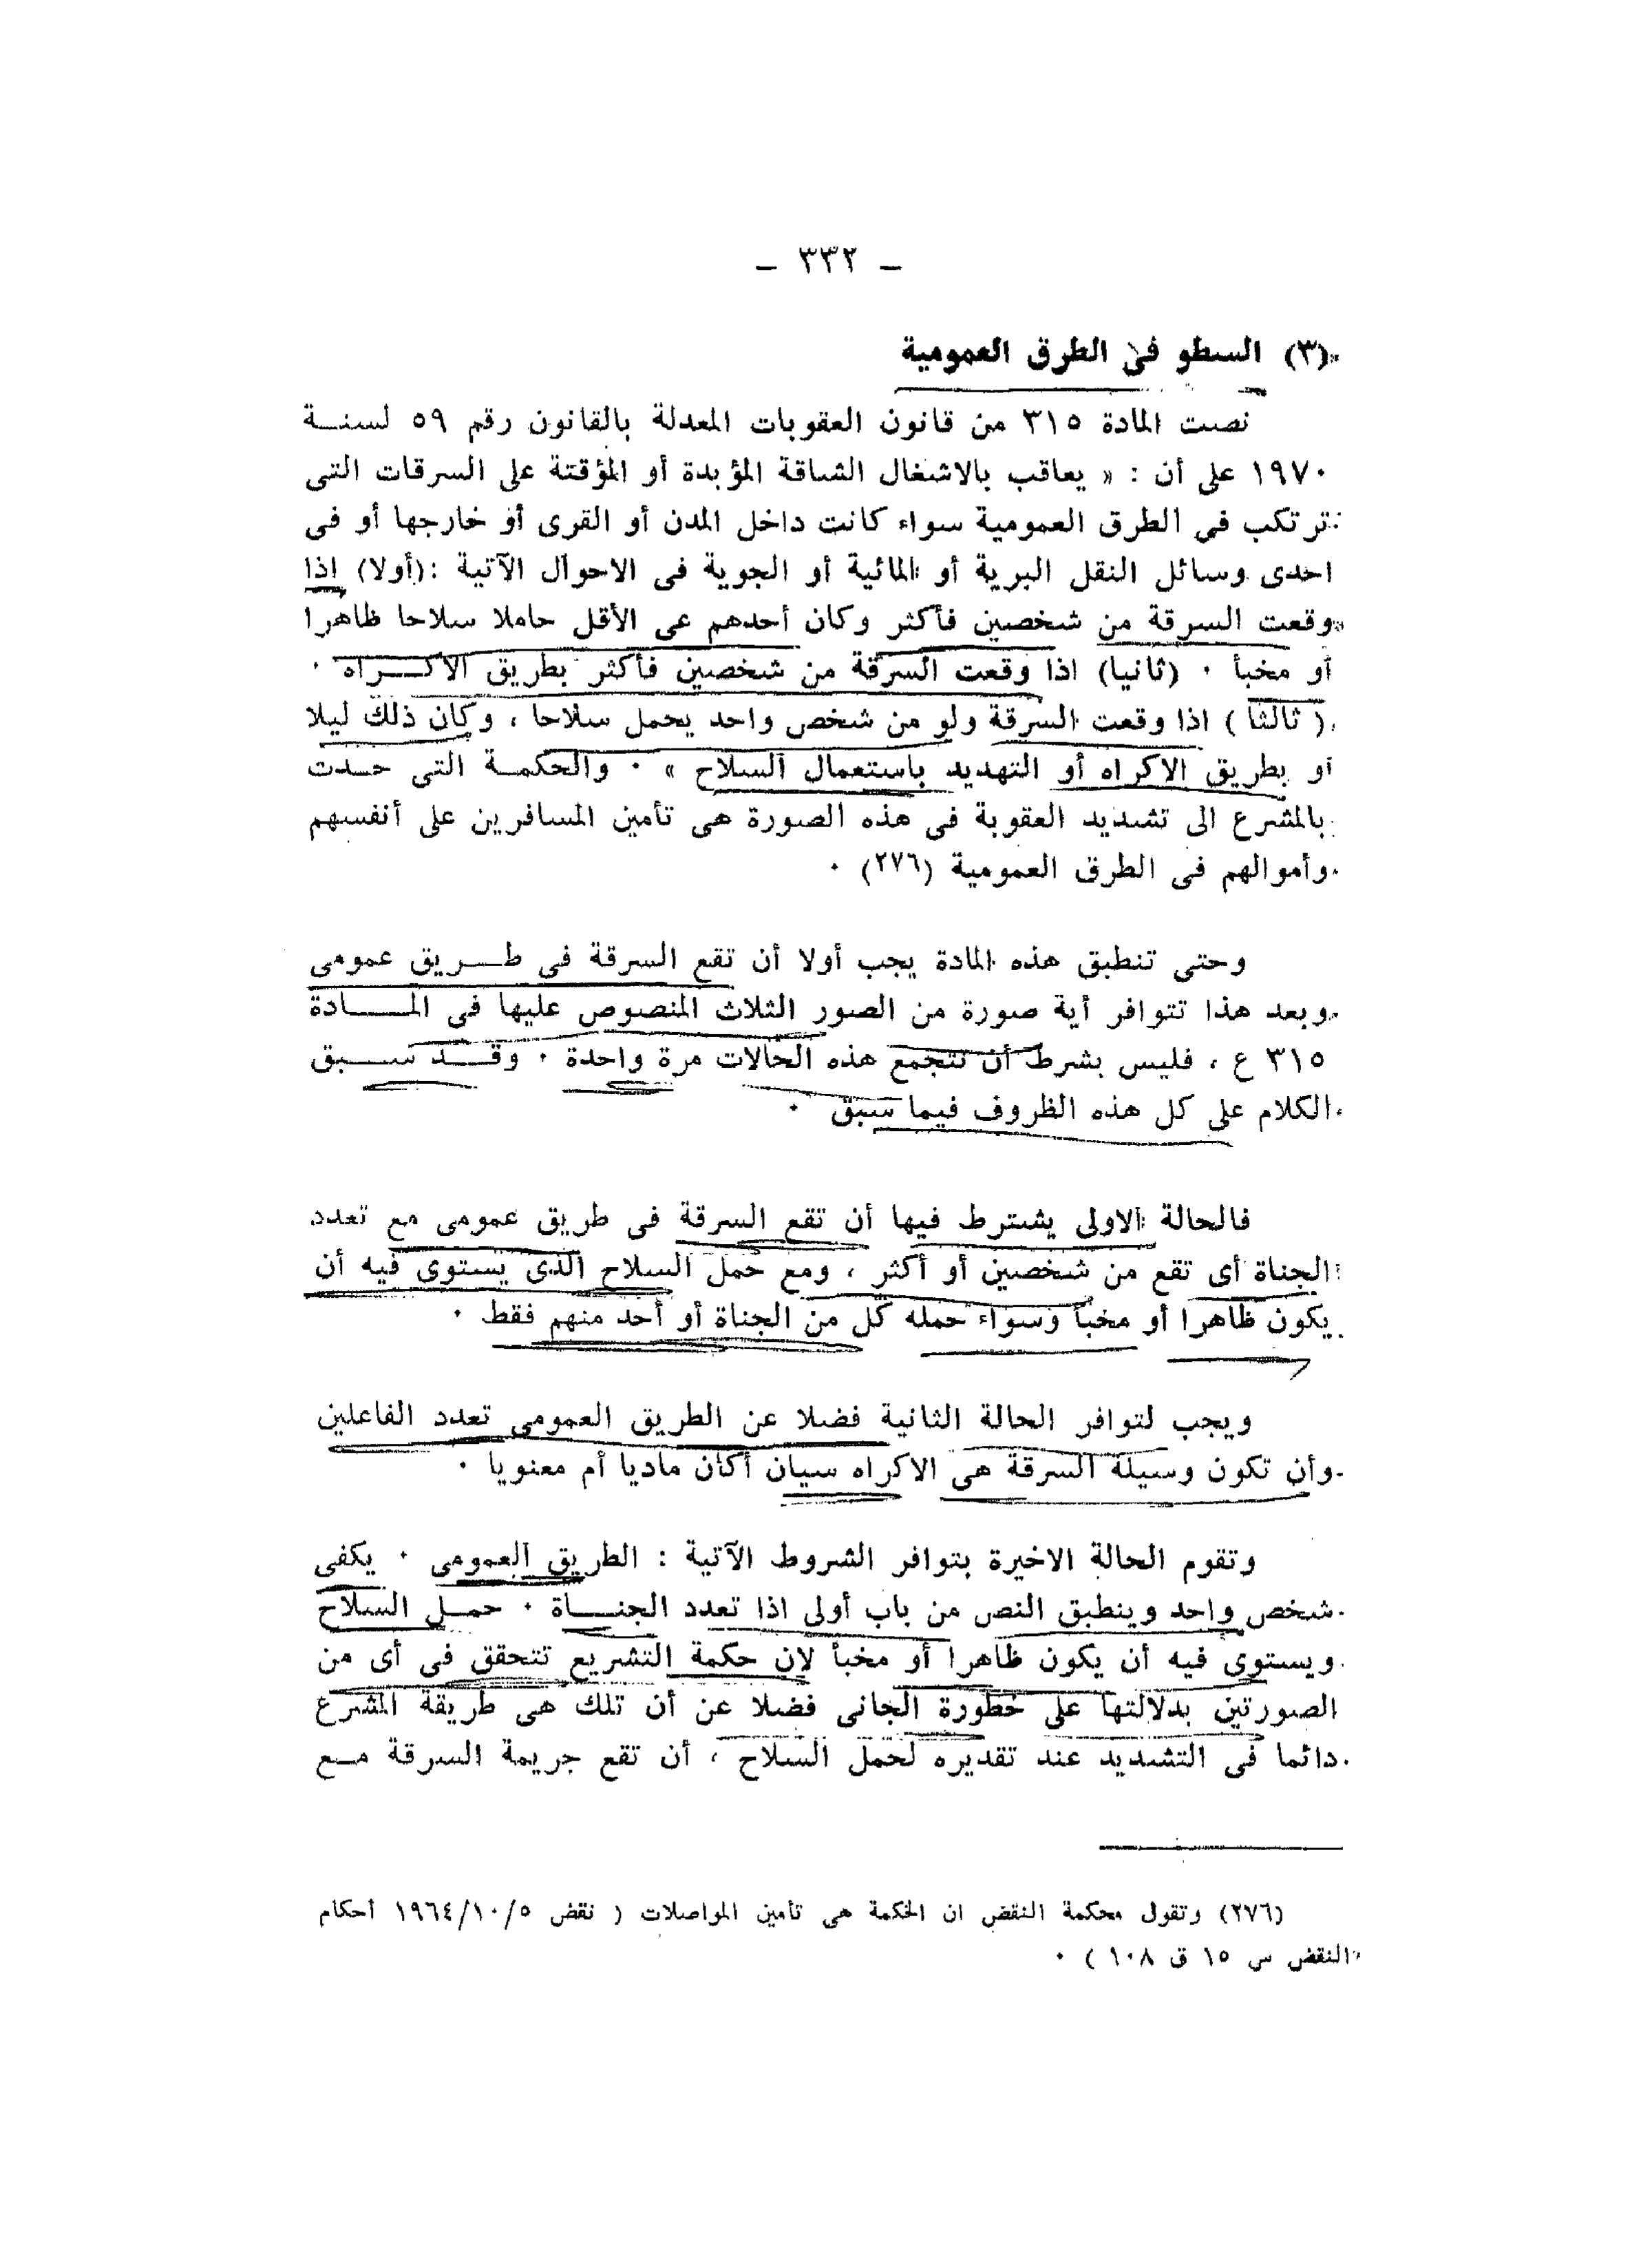 – ٣٣٢ –
(٣) السطو فى الطرق العمومية
نصت المادة ٣١٥ من قانون العقوبات المعدلة بالقانون رقم ٥٩ لسنة
١٩٧٠ على أن : « يعاقب بالاشغال الشاقة المؤبدة أو المؤقتة على السرقات التى
ترتكب فى الطرق العمومية سواء كانت داخل المدن أو القرى أو خارجها أو فى
احدى وسائل النقل البرية أو المائية أو الجوية فى الاحوال الآتية : (أولا) إذا
وقعت السرقة من شخصين فأكثر وكان أحدهم عى الأقل حاملا سلاحا ظاهرا
أو مخبأ ٠ (ثانيا) اذا وقعت السرقة من شخصين فأكثر بطريق الاكراه ٠
( ثالثا ) اذا وقعت السرقة ولو من شخص واحد يحمل سلاحا ، وكان ذلك ليلا
أو بطريق الاكراه أو التهديد باستعمال السلاح » ٠ والحكمة التى حدت
بالمشرع الى تشديد العقوبة فى هذه الصورة هى تأمين المسافرين على أنفسهم
وأموالهم فى الطرق العمومية (٢٧٦) ٠
وحتى تنطبق هذه المادة يجب أولا أن تقع السرقة فى طريق عمومى
وبعد هذا تتوافر أية صورة من الصور الثلاث المنصوص عليها فى المادة
٣١٥ ع ، فليس بشرط أن تتجمع هذه الحالات مرة واحدة ٠ وقد سبق
الكلام على كل هذه الظروف فيما سبق ٠
فالحالة الاولى يشترط فيها أن تقع السرقة فى طريق عمومى مع تعدد
الجناة أى تقع من شخصين أو أكثر ، ومع حمل السلاح الذى يستوى فيه أن
يكون ظاهرا أو مخبأ وسواء حمله كل من الجناة أو أحد منهم فقط ٠
ويجب لتوافر الحالة الثانية فضلا عن الطريق العمومى تعدد الفاعلين
وأن تكون وسيلة السرقة هى الاكراه سيان أكان ماديا أم معنويا ٠
وتقوم الحالة الاخيرة بتوافر الشروط الآتية : الطريق العمومى ٠ يكفى
شخص واحد وينطبق النص من باب أولى اذا تعدد الجناة ٠ حمل السلاح
ويستوى فيه أن يكون ظاهرا أو مخبأ لان حكمة التشريع تتحقق فى أى من
الصورتين بدلالتها على خطورة الجانى فضلا عن أن تلك هى طريقة المشرع
دائما فى التشديد عند تقديره لحمل السلاح ، أن تقع جريمة السرقة مع
(٢٧٦) وتقول محكمة النقض ان الحكمة هى تأمين المواصلات ( نقض ١٩٦٤/١٠/٥ أحكام
النقض س ١٥ ق ١٠٨ ) ٠